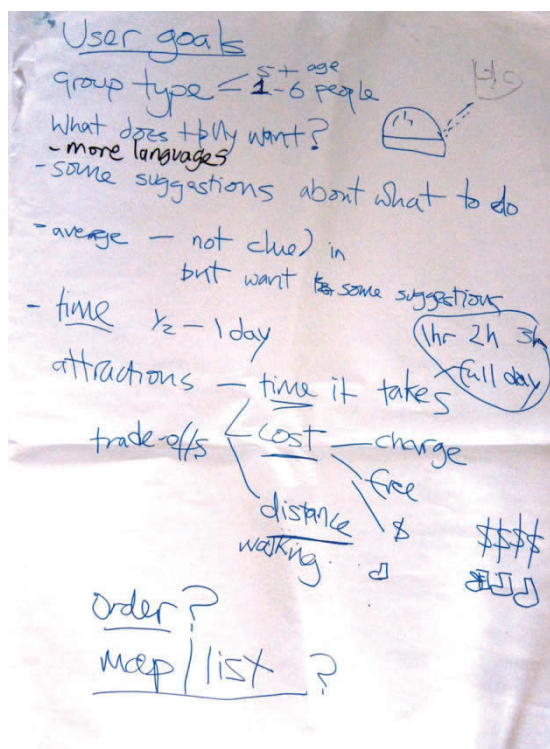 User goals
group type < 5+ age
1-6 people
What does they want?
- more languages
- some suggestions about what to do
- average — not clued in
but want some suggestions
- time ½ - 1 day
1hr 2h 3h
full day
attractions — time it takes
trade-offs cost — charge
free
distance $ $$$$
walking
order?
map / list ?